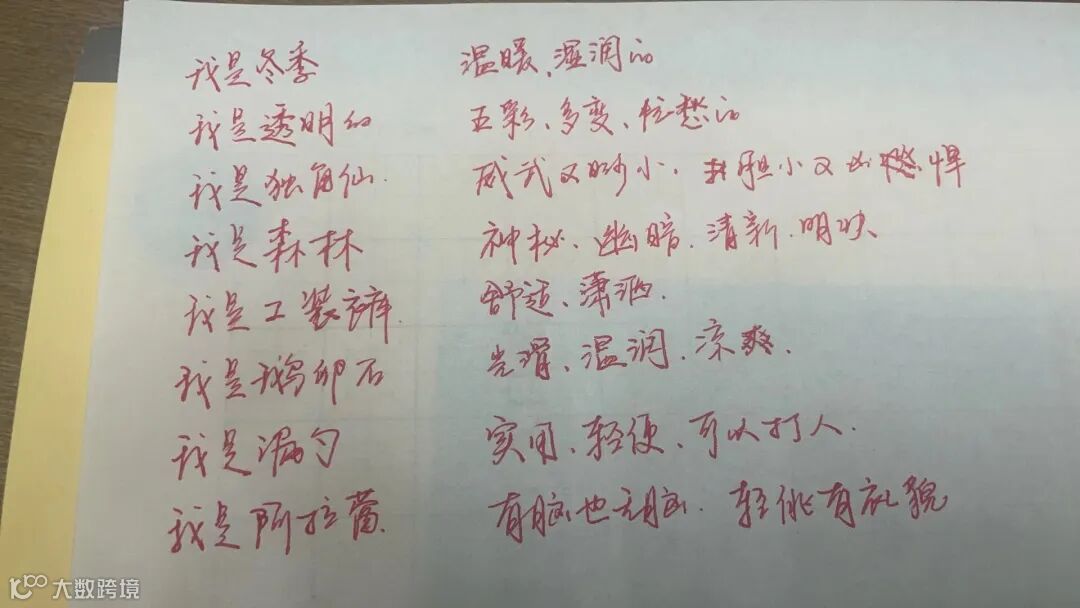 我是冬季 温暖、湿润的
我是透明的 五彩、多变、忧愁的
我是独角仙. 威武又渺小、胆小又凶悍
我是森林 神秘、幽暗、清新、明快、
我是工装裤. 舒适、潇洒.
我是鹅卵石 光滑、温润、凉爽.
我是漏勺 实用、轻便、可以打人.
我是阿拉蕾. 有脑也无脑. 轻佻有礼貌
大数跨境